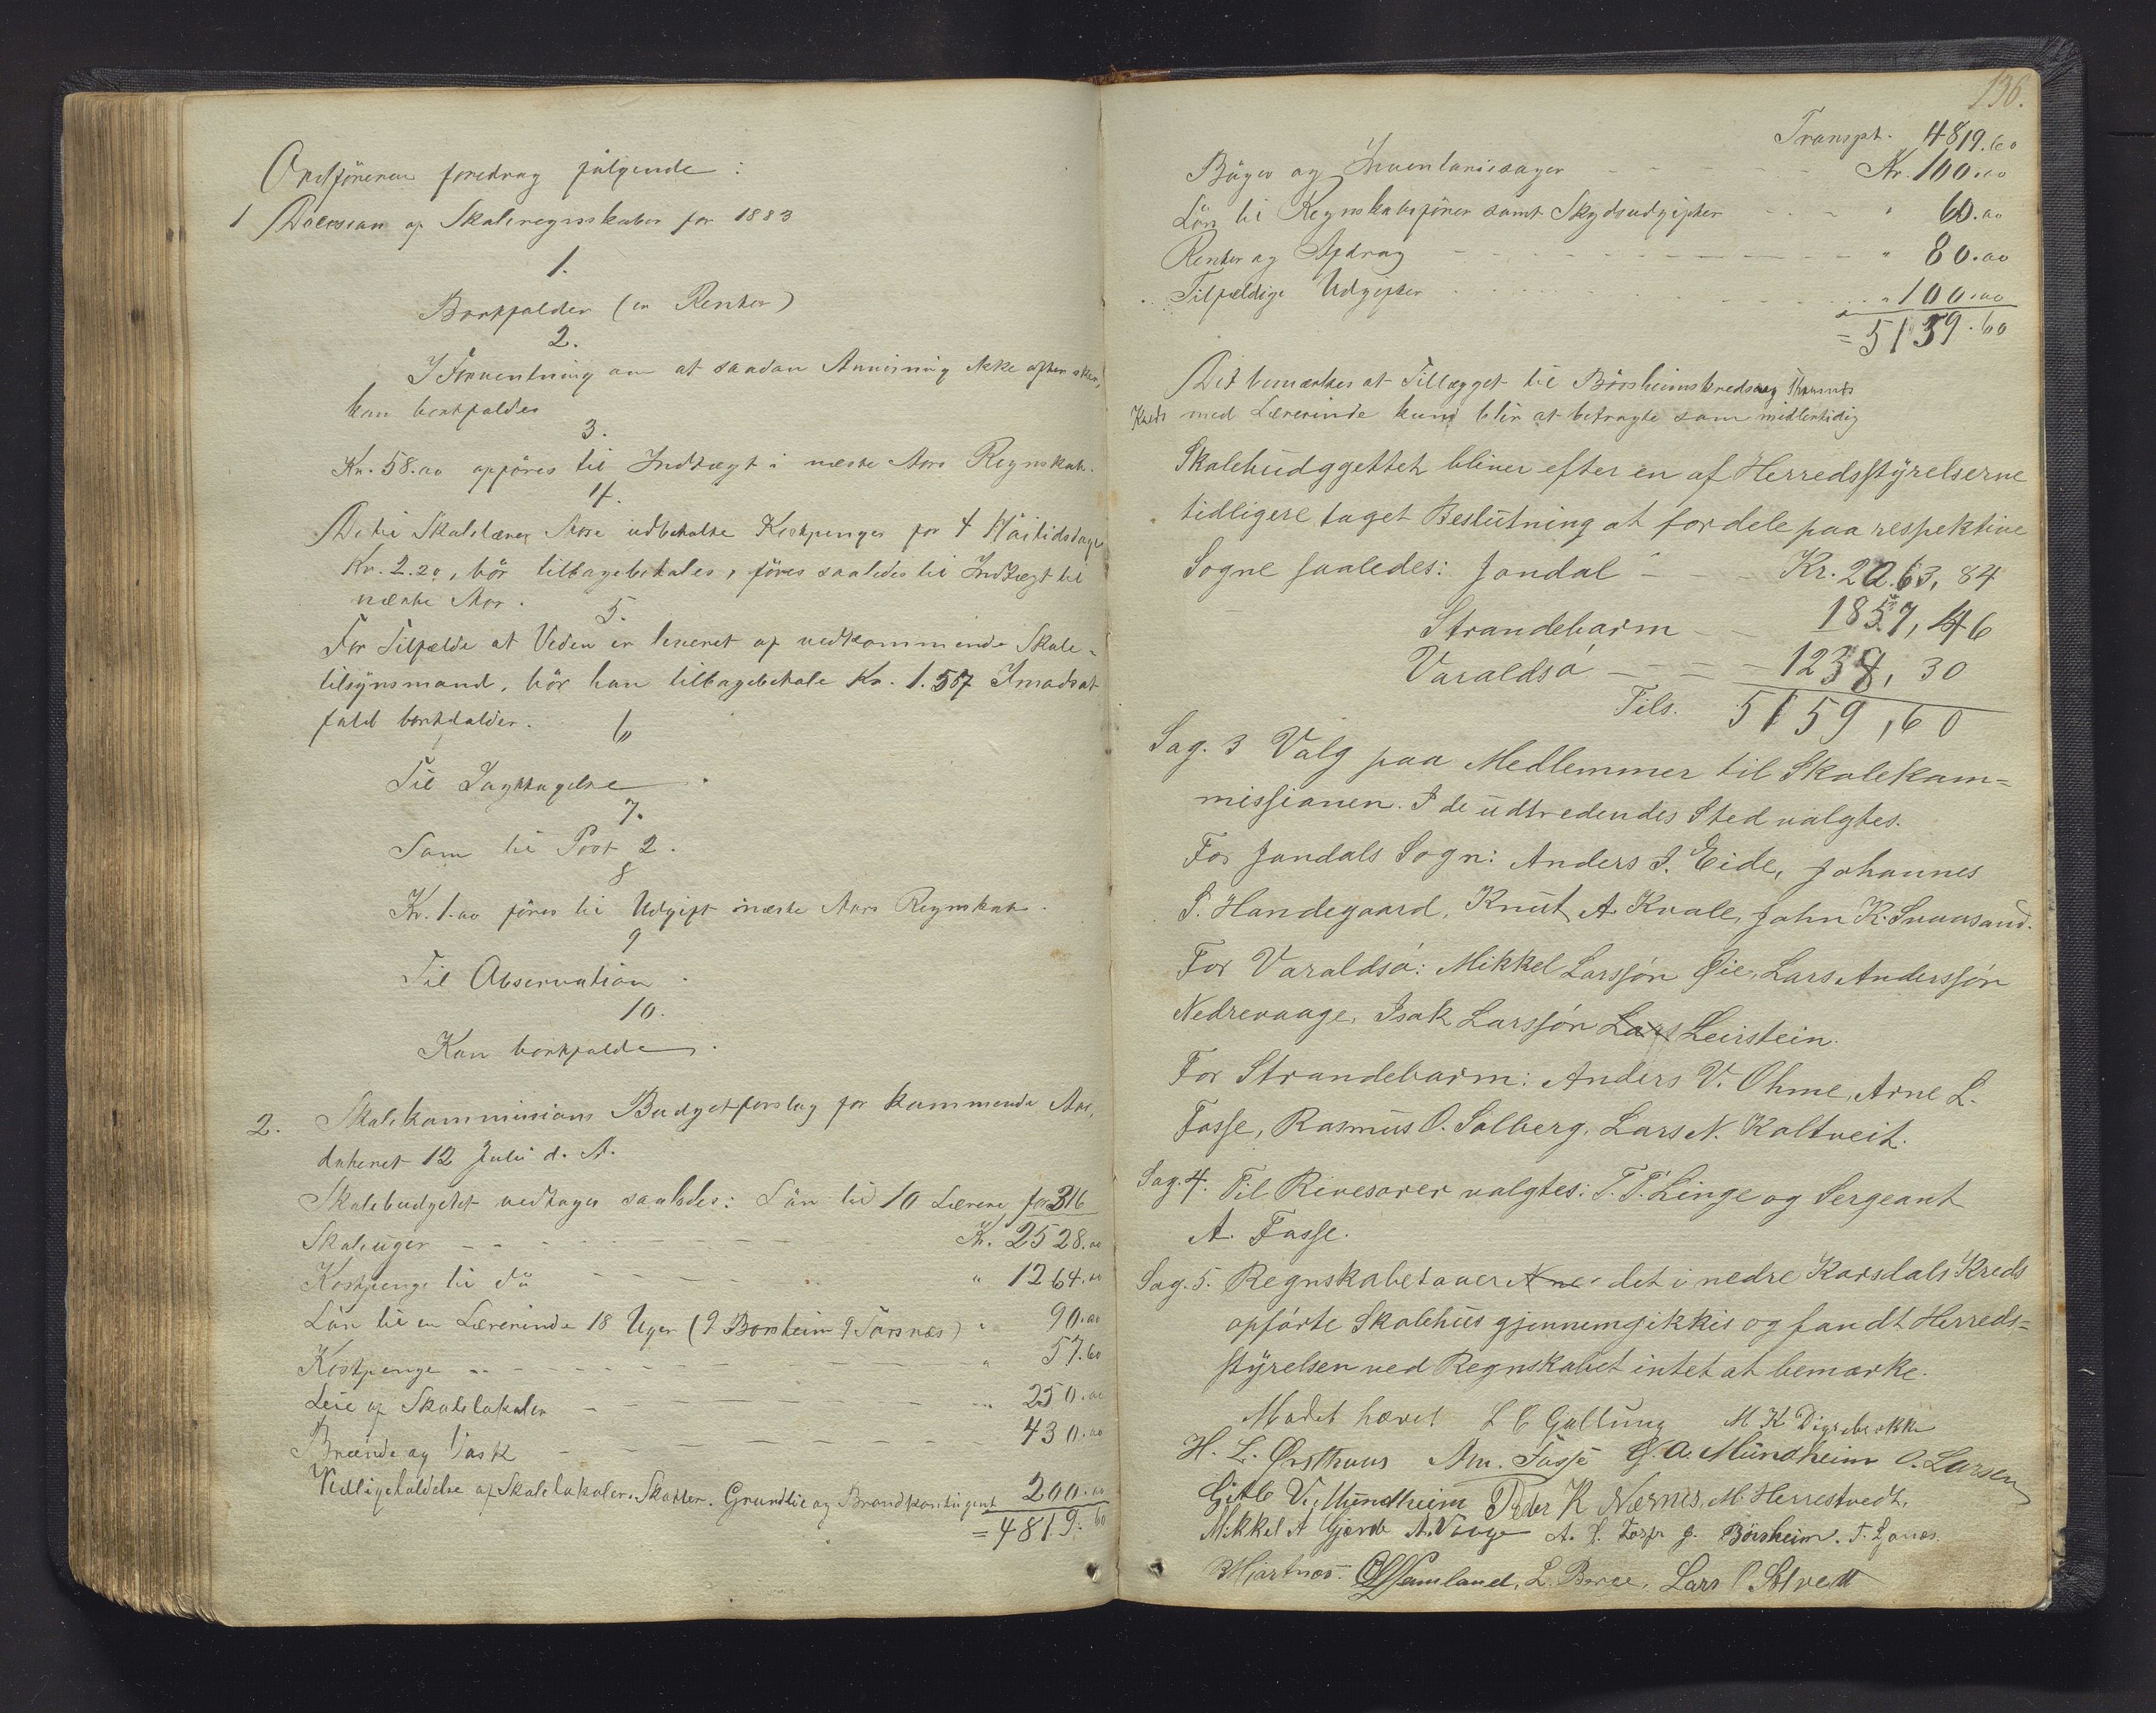 Ordføreren foredrag følgende:
1 Decision af Skoleregnskabet for 1883
1.
Bortfalder (er Renter)
2.
I Forventning om at saadan Anvisning ikke oftere sker,
kan bortfaldes
3.
Kr. 58.00 opføres til Indtægt i næste Aars Regnskab.
4.
De til Skolelærer Aase udbetalte Kostpenger for 4 Høitidsdage
Kr. 2.20, bør tilbagebetales, føres saaledes til Indtægt til
næste Aar.
5.
For Tilfælde at Veden er leveret af vedkommende Skole-
tilsynsmand, bør han tilbagebetale Kr. 1.507 I modsat
fald bortfalder.
6
Til Iagttagelse.
7.
Som til Post 2.
8
Kr. 1.00 føres til Udgift i næste Aars Regnskab.
9
Til Observation.
10.
Kan bortfalde.
2. Skolekommissions Budgetforslag for kommende Aar,
dateret 12 Juli d. A.
Skolebudgetet vedtoges saaledes: Løn til 10 Lærere for 316
Skoleuger - - - Kr. 2528.00
Kostpenge til Do - - - " 1264.00
Løn til en Lærerinde 18 Uger (9 Borsheim 9 Torsnæs) " 90.00
Kostpenge - - - " 57.60
Leie af Skolelokaler - - - 250.00
Brænde og Vask - - - 430.00
Vedligeholdelse af Skolelokaler. Skatter. Grundleie og Brandkontingent 200.00
= 4819.60
136.
Transpt. 4819.60
Bøger og Inventariesager - - - Kr. 100.00
Løn til Regnskabsfører samt Skydsudgifter - - - " 60.00
Renter og Afdrag - - - " 80.00
Tilfældige Udgifter - - - " 100.00
= 5159.60
Det bemærkes at Tillægget til Börsheimskreds og Thorsnes
Kreds med Lærerinde kun blir at betragte som midlertidig
Skolebudggettet bliver efter en af Herredsstyrelserne
tidligere taget Beslutning at fordele paa respektive
Sogne saaledes: Jondal - - - Kr. 2063, 84
Strandebarm - - 1857, 46
Varaldsö - - - 1238, 30
Tils. 5159, 60
Sag. 3 Valg paa Medlemmer til Skolekom=
missionen. I de udtredendes Sted valgtes.
For Jondals Sogn: Anders J. Eide, Johannes
S. Handegaard, Knut A. Kvale, John K. Svaasand.
For Varaldsö: Mikkel Larssön Øie, Lars Anderssön
Nedrevaage, Isak Larssön Lars Leirstein.
For Strandebarm: Anders V. Ohme, Arne L.
Fosse, Rasmus O. Solberg, Lars N. Koltveit.
Sag. 4. Til Rivesorer valgtes: T. T. Linge og Sergeant
A. Fosse.
Sag. 5. Regnskabet over Ane det i nedre Korsdals Kreds
opførte Skolehus gjennemgikkis og fandt Herreds=
styrelsen ved Regnskabet intet at bemærke.
Mødet hævet L C Galtung M K Digrebrekke
H. L. Ørsthuus Am. Fosse G. A. Mundheim O. Larsen
Gitle V. Mundheim Peder K Nærnes, M. Herrestvedt,
Mikkel A Gjerde A. Vaage A. J. J. Börsheim. T. Ljones.
B Hjartnæs. O Samland, L. Berge, Lars O Solvett